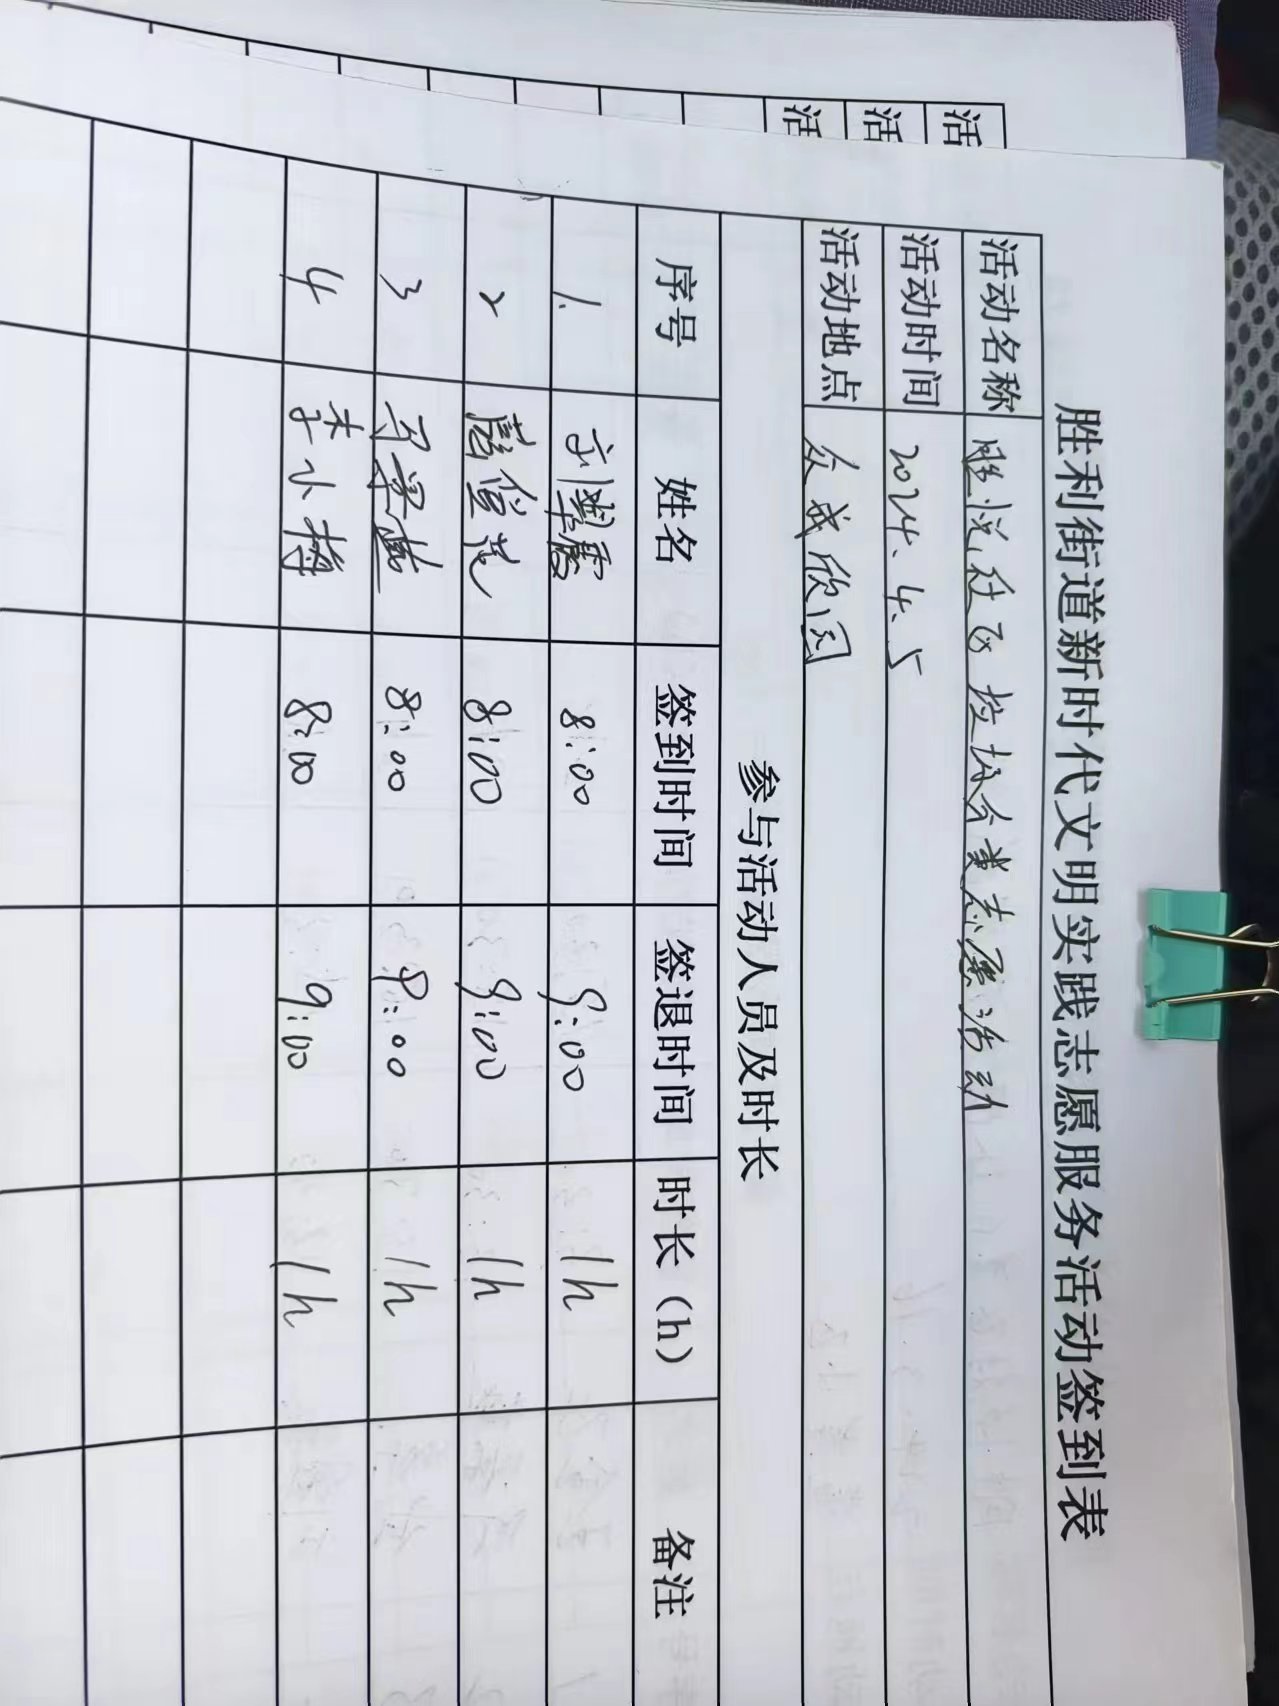 胜利街道新时代文明实践志愿服务活动签到表
活动名称 胜悦社区垃圾分类志愿活动
活动时间 2024.4.5
活动地点 众成欣园
参与活动人员及时长
序号 姓名 签到时间 签退时间 时长（h） 备注
1. 8:00 9:00 1h
2 8:00 9:00 1h
3 8:00 9:00 1h
4 李小梅 8:00 9:00 1h
活
活
活